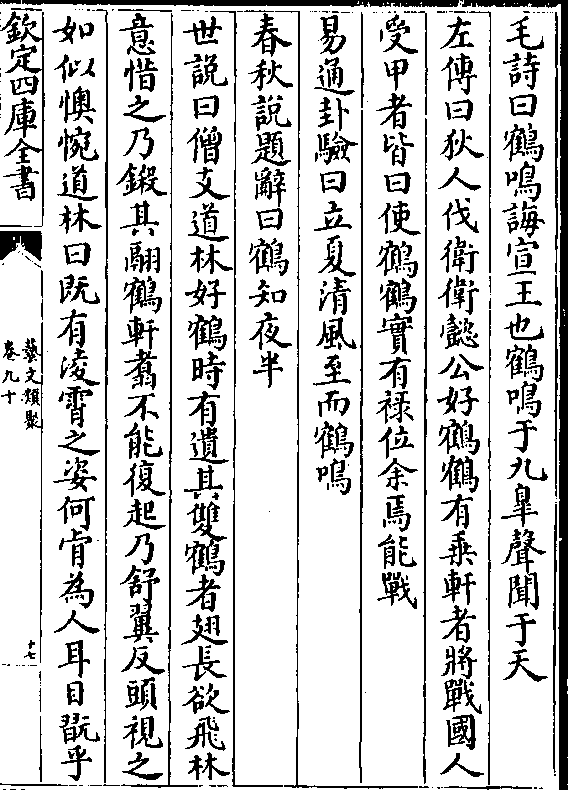 毛詩曰鶴鳴誨宣王也鶴鳴于九臯聲聞于天
左傳曰狄人伐衛衛懿公好鶴鶴有乗軒者將戰國人
受甲者皆曰使鶴鶴實有祿位余焉能戰
易通卦驗曰立夏清風至而鶴鳴
春秋說題辭曰鶴知夜半
世說曰僧支道林好鶴時有遺其雙鶴者翅長欲飛林
意惜之乃鎩其翮鶴軒翥不能復起乃舒翼反頭視之
如似懊惋道林曰既有凌霄之姿何肯為人耳目翫乎
欽定四庫全書
藝文類聚
卷九十
十七